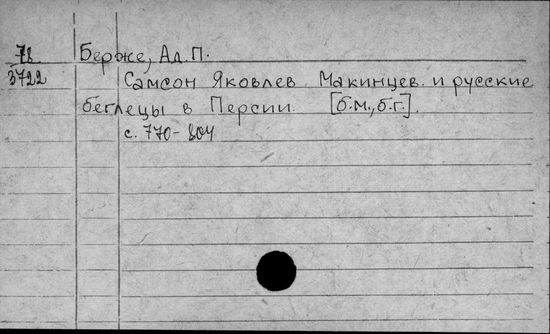 78 Берже, Ад. П.
3722 Самсон Яковлев Макинцев и русские
беглецы в Персии. [б.м., б.г.],
с. 770-804